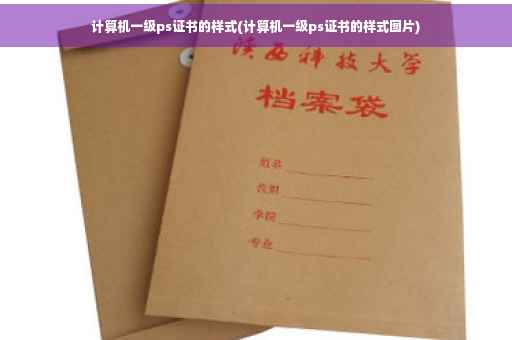 计算机一级ps证书的样式(计算机一级ps证书的样式图片)
陕西科技大学
档案袋
姓名
学院
专业